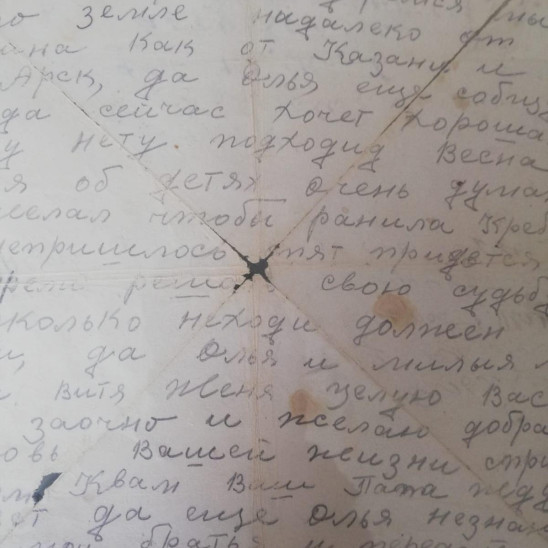 о земле надалеко от
йна Как от Казани и
Арск, да Олья еще собща
да сейчас хочет хороша
у нету подходид Весна
я об детях очень дума
желал чтоби ранила Креп
непришлось опят придется
решать свою судьбу
сколько неходи должен
и, да Олья и милыя
Витя Женя целую Вас
заочно и желаю добра
овь Вашей жизни
Квам Ваш Папа
ет да еще Олья незна
братья и передай